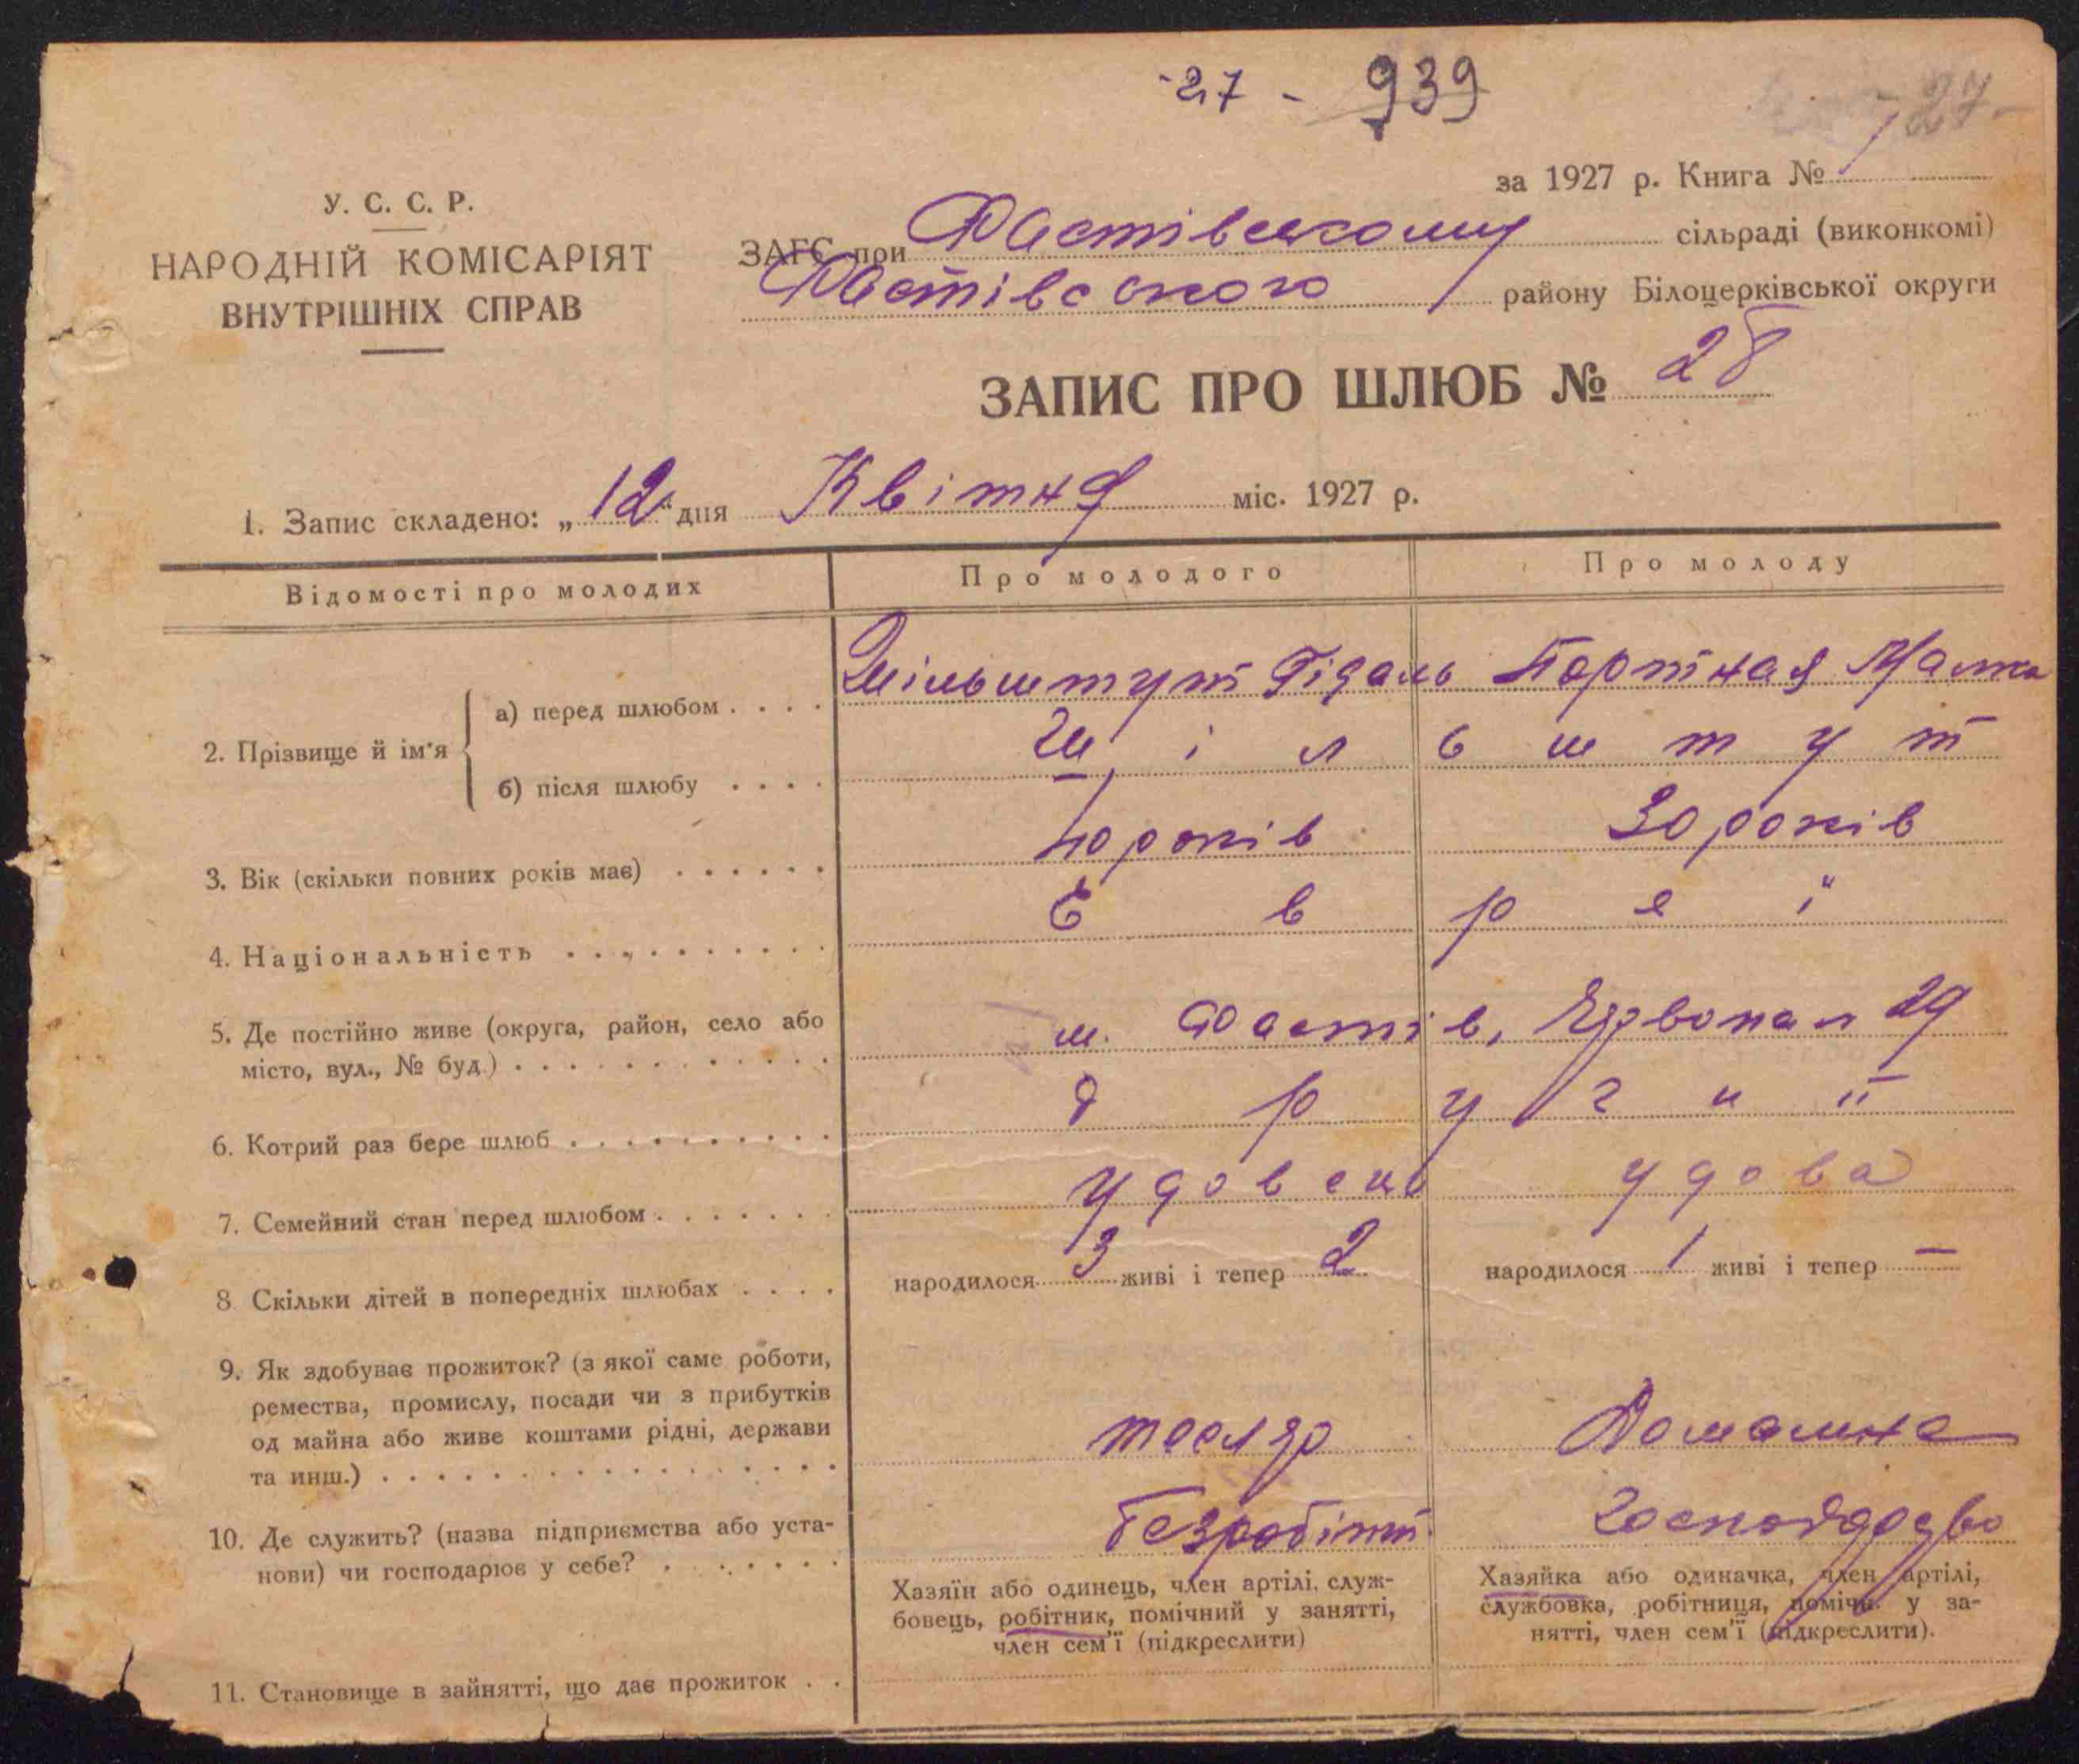 27 - 939
27
за 1927 р. Книга № 1
У. С. С. Р.
НАРОДНІЙ КОМІСАРІЯТ
ВНУТРІШНІХ СПРАВ
ЗАГС при Фастівському сільраді (виконкомі)
Фастівського району Білоцерківської округи
ЗАПИС ПРО ШЛЮБ № 28
1. Запис складено: „12“ дня Квітня міс. 1927 р.
Відомості про молодих Про молодого Про молоду
2. Прізвище й ім'я
а) перед шлюбом . . . . Шільштут Гідаль Портная Малка
б) після шлюбу . . . . Шільштут
3. Вік (скільки повних років має) . . . . . . 40 років 30 років
4. Національність . . . . . . . . . Євреї
5. Де постійно живе (округа, район, село або
місто, вул., № буд.) . . . . . . . . . . . . м. Фастів, 29
6. Котрий раз бере шлюб . . . . . . . . . . другий
7. Семейний стан перед шлюбом . . . . . . . удовець удова
8. Скільки дітей в попередніх шлюбах . . . . народилося 3 живі і тепер 2 народилося 1 живі і тепер —
9. Як здобуває прожиток? (з якої саме роботи,
ремества, промислу, посади чи з прибутків
од майна або живе коштами рідні, держави
та инш.) . . . . . . . . . . . . . . . . . . тесляр Домашнє
10. Де служить? (назва підприємства або уста-
нови) чи господарює у себе? . . . . . . . безробітн. господарство
Хазяїн або одинець, член артілі, служ-
бовець, робітник, помічний у занятті,
член сем'ї (підкреслити)
Хазяйка або одиначка, член артілі,
службовка, робітниця, помічн. у за-
нятті, член сем'ї (підкреслити).
11. Становище в зайнятті, що дає прожиток . .